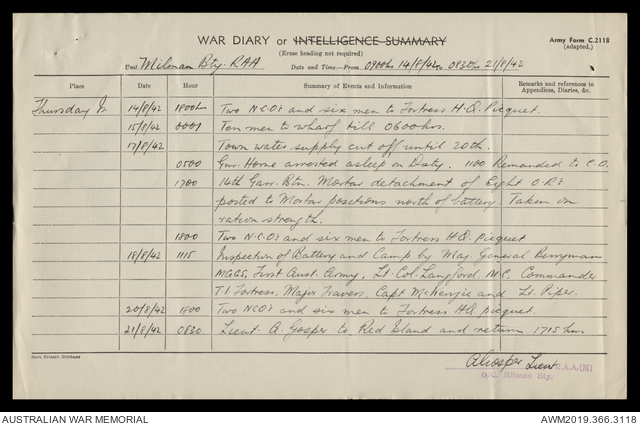 WAR DIARY or INTELLIGENCE SUMMARY
Army Form C.2118
(Erase heading not required)
(adapted.)
Unit Milman Bty. RAA Date and Time—From 0900hrs 14/8/42 to 0830hrs 21/8/42
Place Date Hour Summary of Events and Information Remarks and references to Appendices, Diaries, &c.
Thursday Is 14/8/42 1800hrs Two N.C.O's and six men to Fortress H.Q. Picquet.
15/8/42 0001 Ten men to wharf till 0600hrs.
17/8/42 Town water supply cut off until 20th.
0500 Gnr. Horne arrested asleep on Duty. 1100 Remanded to C.O.
1700 14th Garr. Btn. Mortar detachment of Eight O.R's
posted to Mortar positions north of battery. Taken on
ration strength.
1800 Two N.C.O's and six men to Fortress H.Q. Picquet
18/8/42 1115 Inspection of Battery and Camp by Maj. General Berryman
MGGS, First Aust. Army, Lt. Col. Langford. M.C, Commander
T.I Fortress, Major Travers, Capt McKenzie and Lt. Piper.
20/8/42 1800 Two NCO's and six men to Fortress HQ picquet.
21/8/42 0830 Lieut. A. Gosper to Red Island and return 1715 hrs
Govt. Printer, Brisbane
A Gosper Lieut R.A.A.(M)
O.C. Milman Bty.
AUSTRALIAN WAR MEMORIAL
AWM2019.366.3118